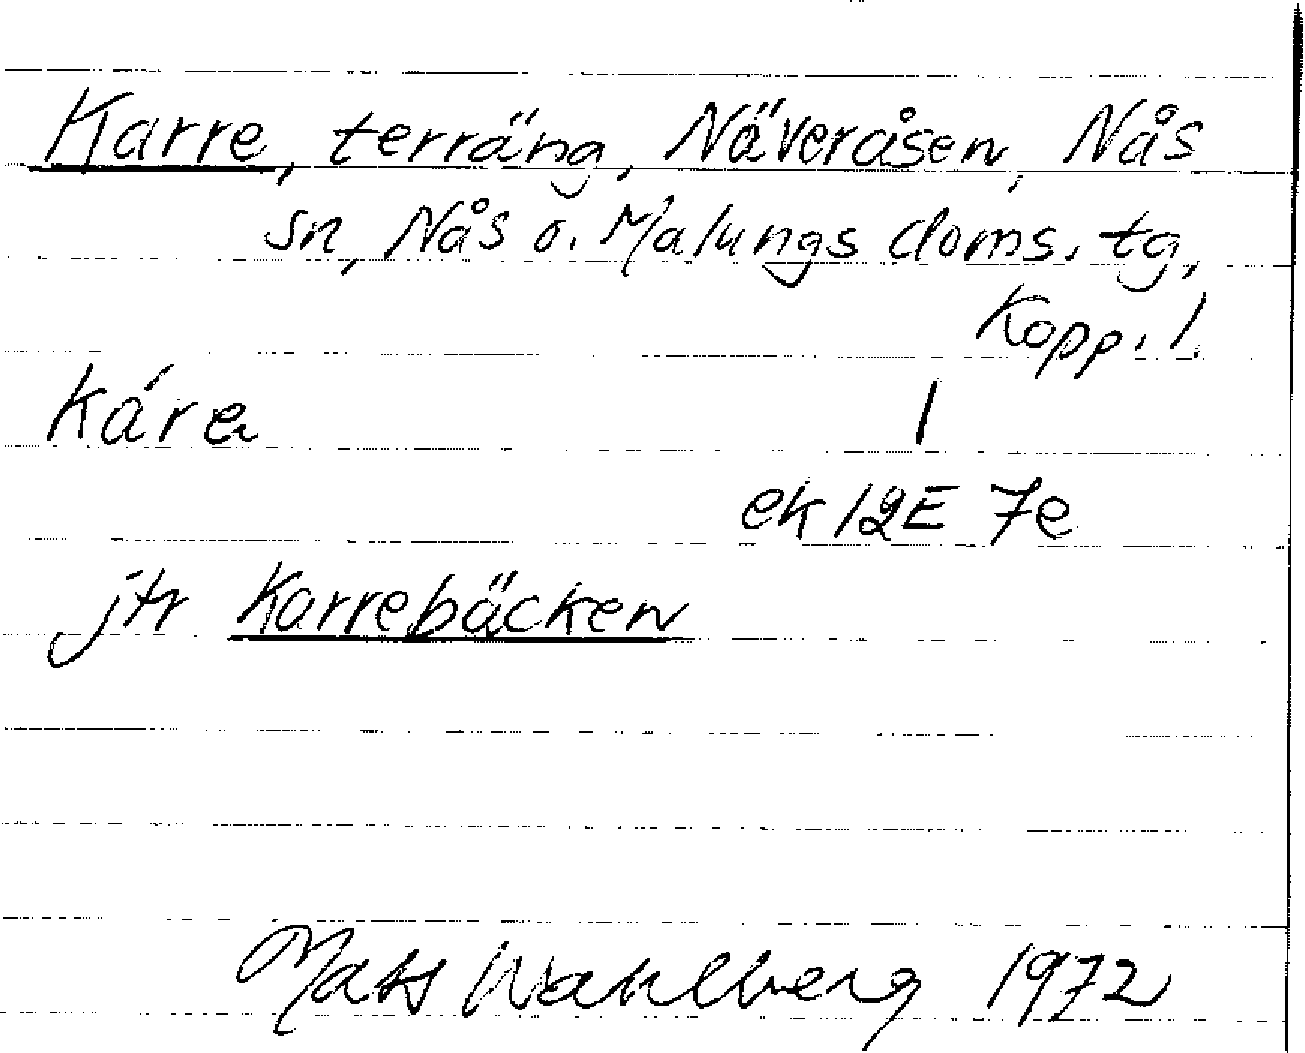 Karre, terräng, Näveråsen, Nås
sn, Nås o. Malungs doms. tg,
Kopp. l.
káre 1
ek 12E 7e
jfr Karrebäcken
Mats Wahlberg 1972